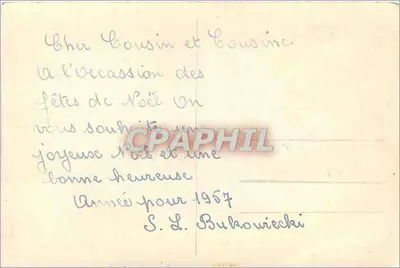 Cher Cousin et Cousine
A l'Occassion des
fêtes de Noël On
vous souhaite un
CPAPHIL
joyeuse Noël et une
bonne heureuse
Année pour 1957
S. L. Bukowiecki